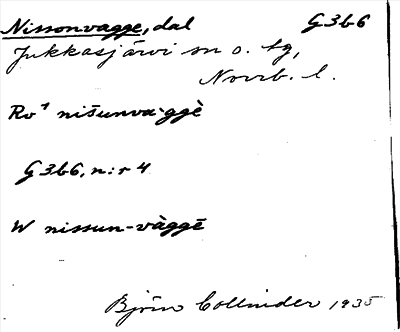 Nissonvagge, dal G3b6
Jukkasjärvi sn o. tg,
Norrb. l.
Ro¹ nišunva·ggè
G3b6, n:r 4
W nissun-vàggē
Björn Collinder 1935